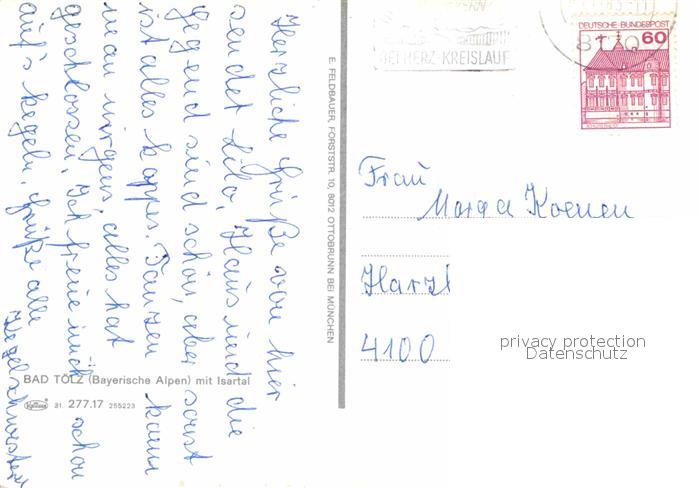 Herzliche Grüße von hier
sendet Lilo, Haus und die
Gegend sind schön, aber sonst
ist alles kappes. Tanzen kann
man nirgens, alles hat
geschlossen, Ich freue mich schon
auf's kegeln. Grüße alle
Kegelschwestern
BAD TÖLZ (Bayerische Alpen) mit Isartal
31. 277.17 255223
E. FELDBAUER, FORSTSTR. 10, 8012 OTTOBRUNN BEI MÜNCHEN
BEI HERZ-KREISLAUF
DEUTSCHE BUNDESPOST
60
Frau
Marga Koenen
4100
privacy protection
Datenschutz